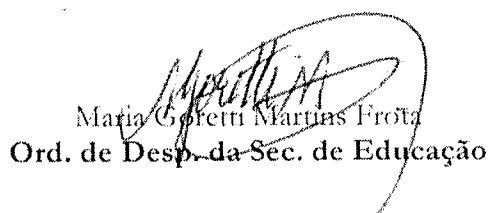 Goretti M
Maria Goretti Martins Frota
Ord. de Desp. da Sec. de Educação